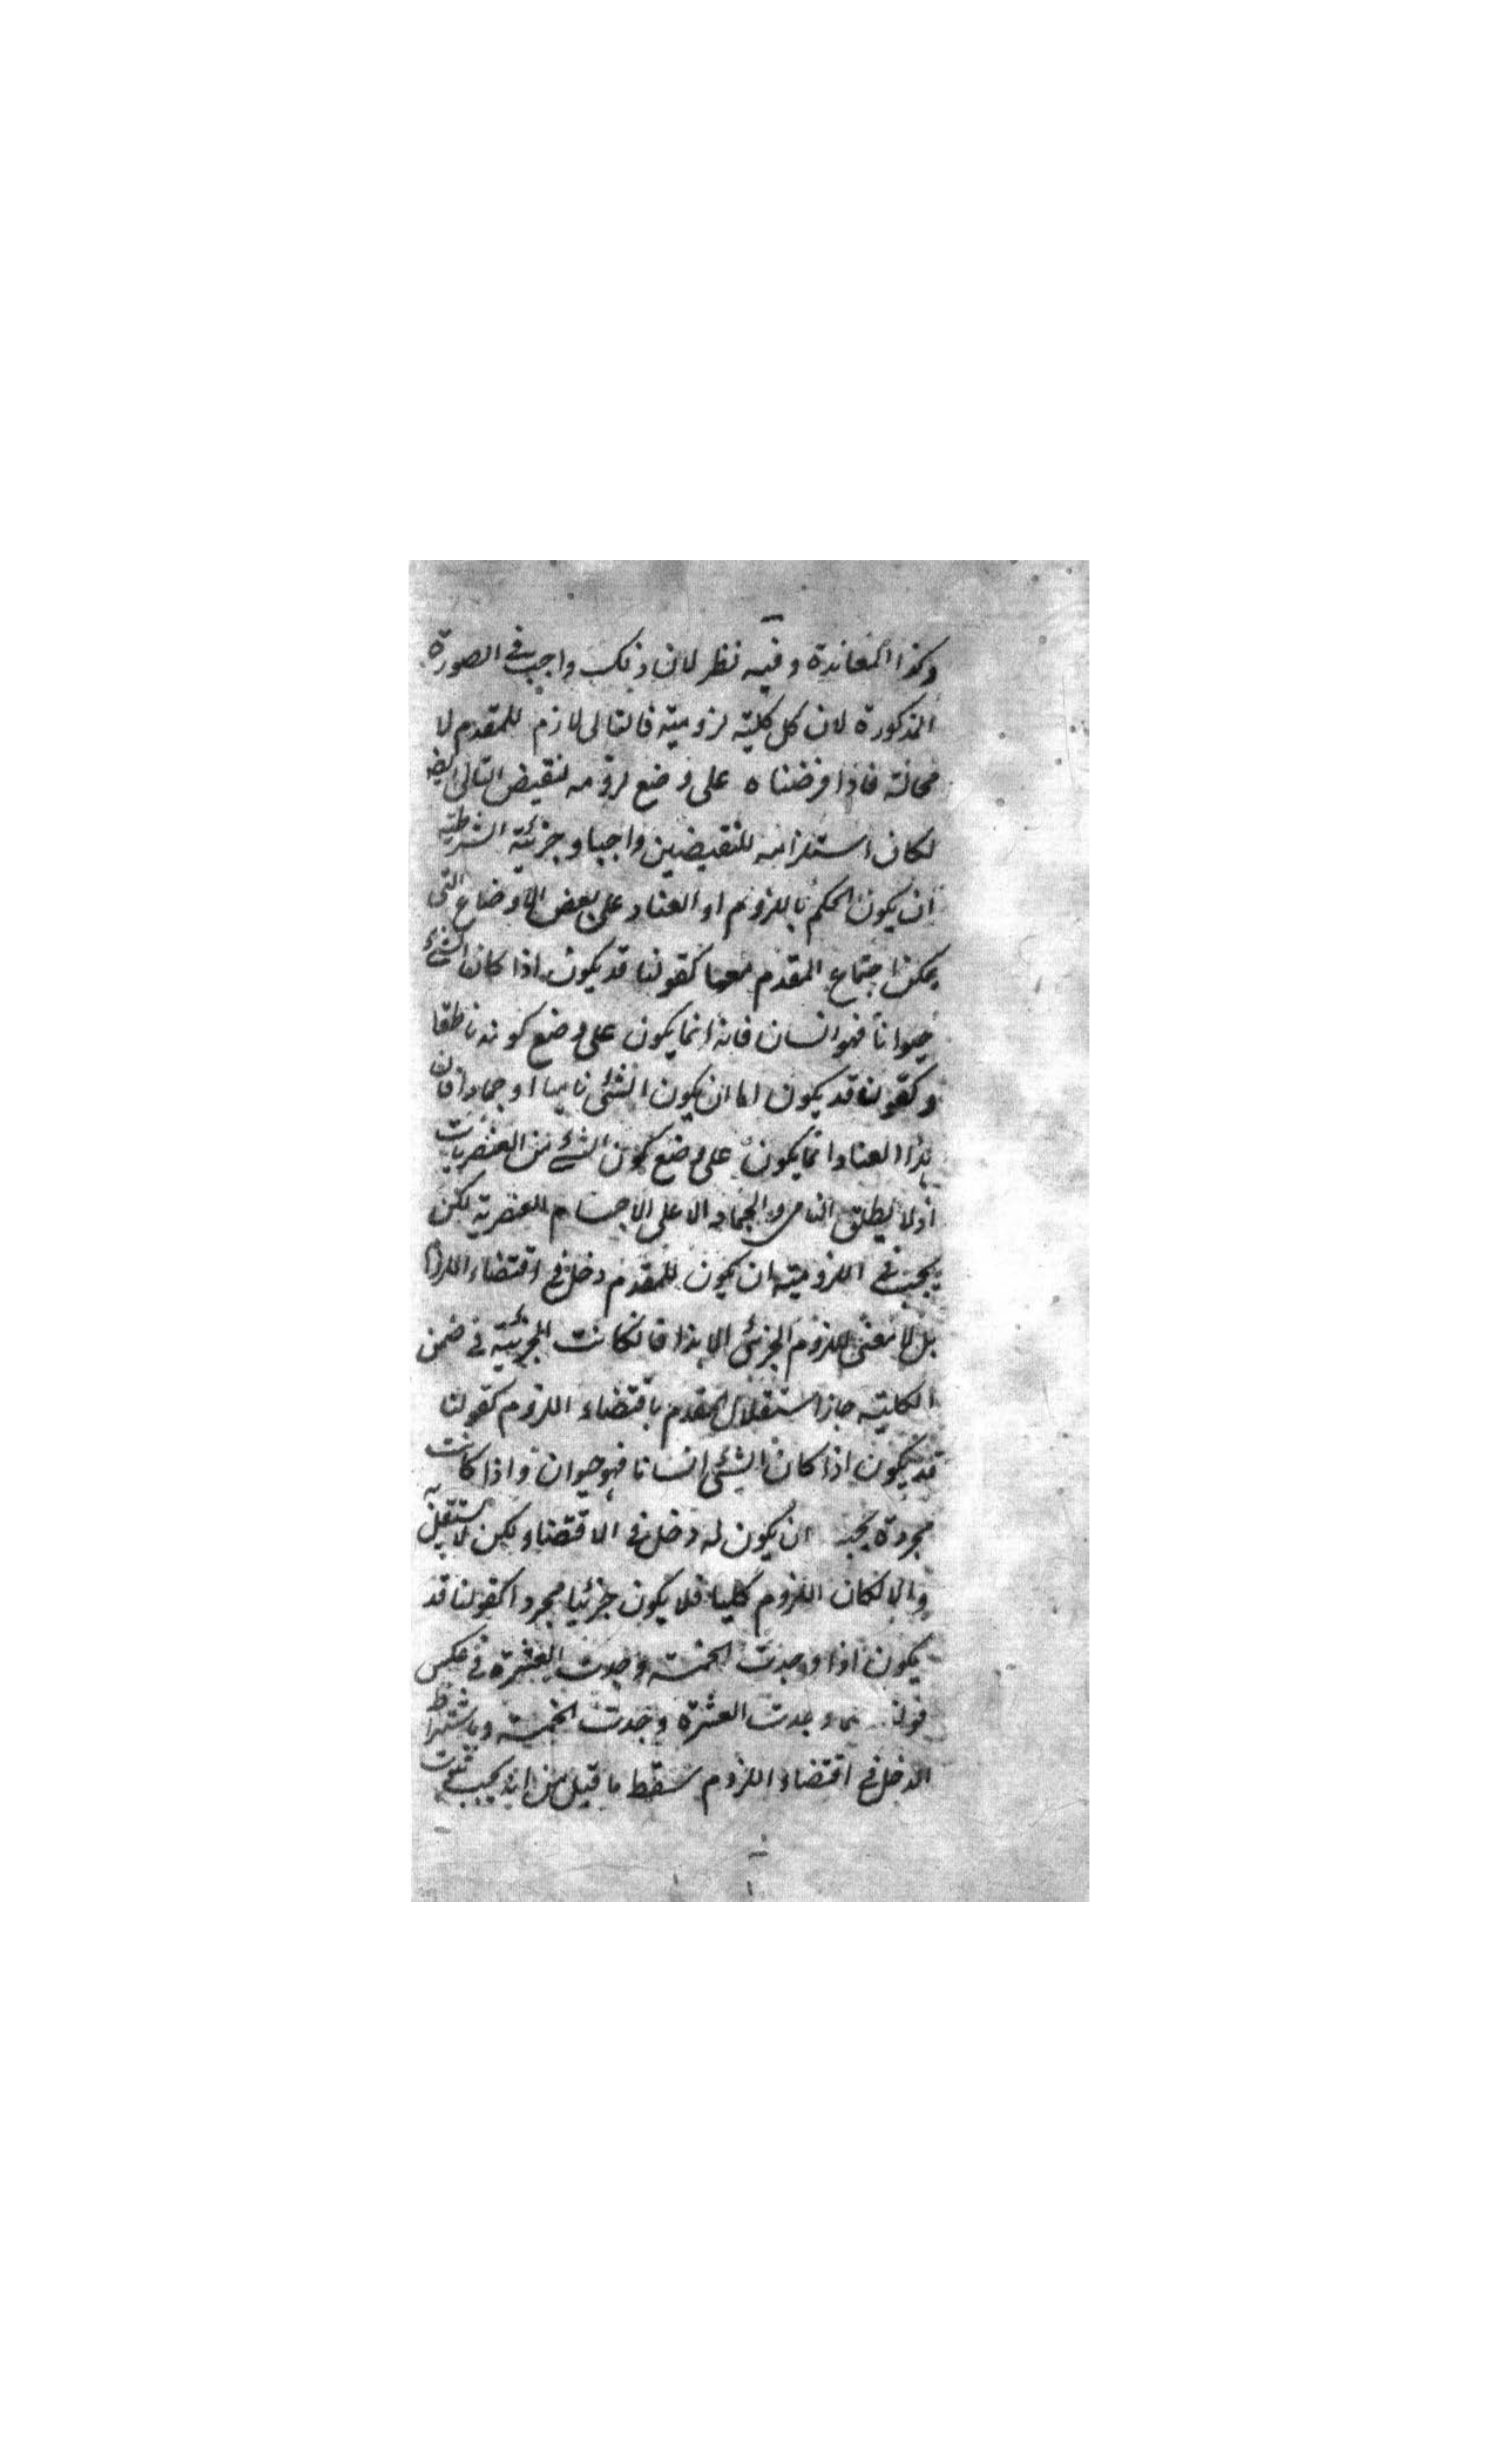 وكذا المعاندة وفيه نظر لان ذلك واجب في الصورة
المذكورة لان كل كلية لزومية فالتالى لازم للمقدم لا
محالة فاذا فرضناه على وضع لزومه لنقيض التالى ايضا
لكان استلزامه للنقيضين واجبا وجزئية الشرطية
ان يكون الحكم باللزوم او العناد على بعض الاوضاع التى
يمكن اجتماع المقدم معها كقولنا قد يكون اذا كان الشئ
حيوانا فهو انسان فانه انما يكون على وضع كونه ناطقا
وكقولنا قد يكون اما ان يكون الشئ ناميا او جمادا فان
هذا العناد انما يكون على وضع كون الشئ من العنصريات
اذ لا يطلق النامى والجماد الا على الاجسام العنصرية لكن
يجب في اللزومية ان يكون للمقدم دخل في اقتضاء اللزوم
بل لا معنى للزوم الجزئى الا هذا فان كانت الجزئية في ضمن
الكلية جاز استقلال المقدم باقتضاء اللزوم كقولنا
قد يكون اذا كان الشئ انسانا فهو حيوان واذا كانت
مجردة يجب ان يكون له دخل في الاقتضاء ولكن لا يستقل به
والا لكان اللزوم كليا فلا يكون جزئيا مجردا كقولنا قد
يكون اذا وجدت الخمسة وجدت العشرة في عكس
قولنا كلما وجدت العشرة وجدت الخمسة وباشتراط
الدخل في اقتضاء اللزوم سقط ما قيل من انه يجب ثبوت